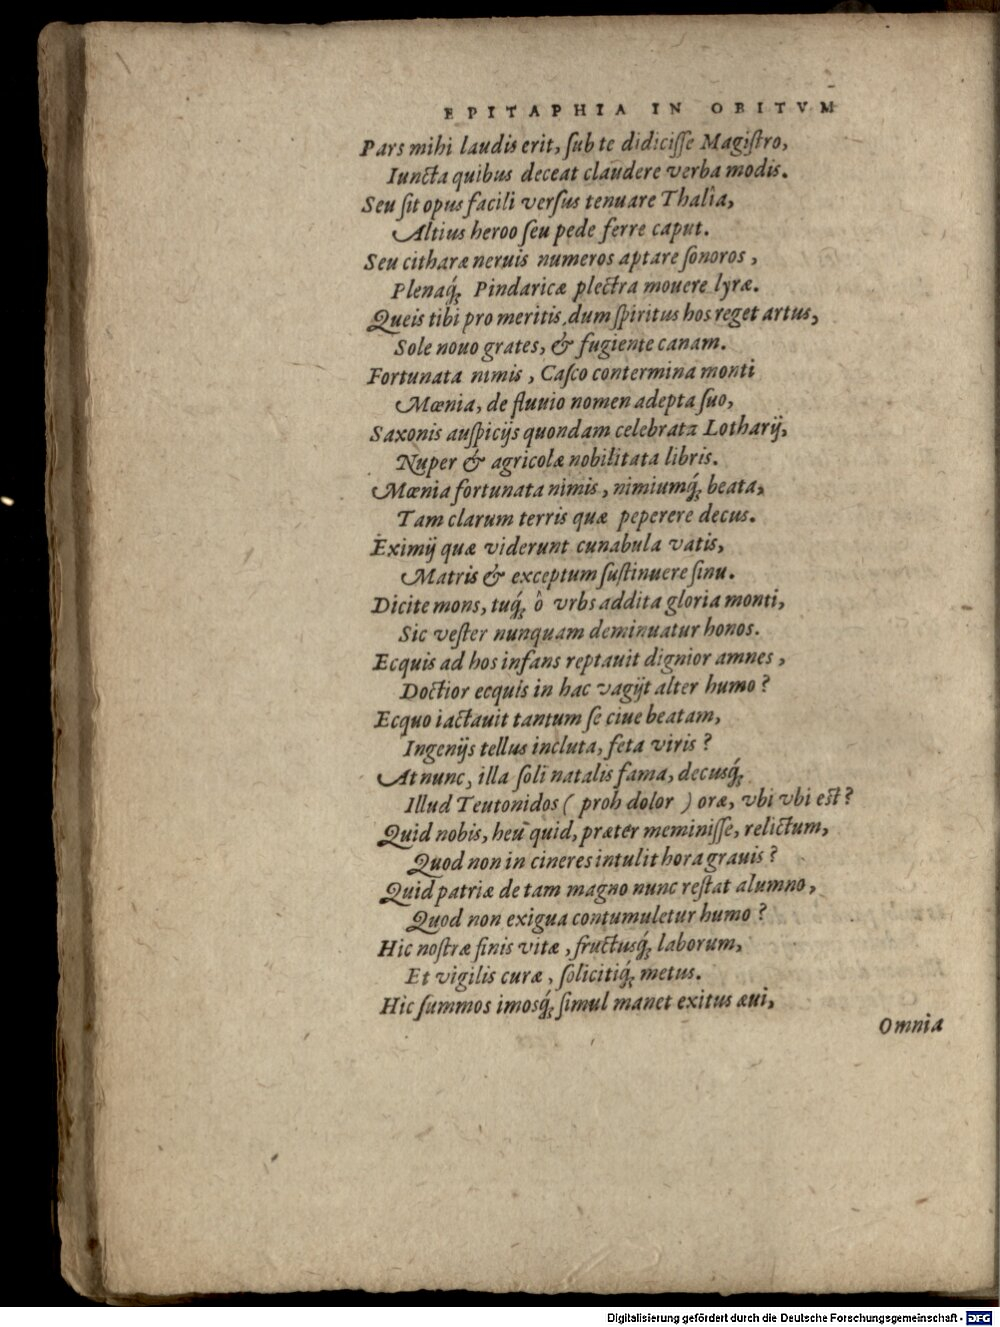 EPITAPHIA IN OBITVM
Pars mihi laudis erit, ſub te didiciſſe Magiſtro,
Iuncta quibus deceat claudere verba modis.
Seu ſit opus facili verſus tenuare Thalîa,
Altius heroo ſeu pede ferre caput.
Seu citharæ neruis numeros aptare ſonoros,
Plenaq́; Pindaricæ plectra mouere lyræ.
Queis tibi pro meritis, dum ſpiritus hos reget artus,
Sole nouo grates, & fugiente canam.
Fortunata nimis, Caſco contermina monti
Mœnia, de fluuio nomen adepta ſuo,
Saxonis auſpicijs quondam celebrata Lotharij,
Nuper & agricolæ nobilitata libris.
Mœnia fortunata nimis, nimiumq́; beata,
Tam clarum terris quæ peperere decus.
Eximij quæ viderunt cunabula vatis,
Matris & exceptum ſuſtinuere ſinu.
Dicite mons, tuq́; ô vrbs addita gloria monti,
Sic veſter nunquam deminuatur honos.
Ecquis ad hos infans reptauit dignior amnes,
Doctior ecquis in hac vagijt alter humo?
Ecquo iactauit tantum ſe ciue beatam,
Ingenijs tellus incluta, feta viris?
At nunc, illa ſoli natalis fama, decusq́;
Illud Teutonidos (proh dolor) oræ, vbi vbi eſt?
Quid nobis, heu quid, præter meminiſſe, relictum,
Quod non in cineres intulit hora grauis?
Quid patriæ de tam magno nunc reſtat alumno,
Quod non exigua contumuletur humo?
Hic noſtræ finis vitæ, fructusq́; laborum,
Et vigilis curæ, ſolicitiq́; metus.
Hic ſummos imosq́; ſimul manet exitus æui,
Omnia
Digitalisierung gefördert durch die Deutsche Forschungsgemeinschaft - DFG